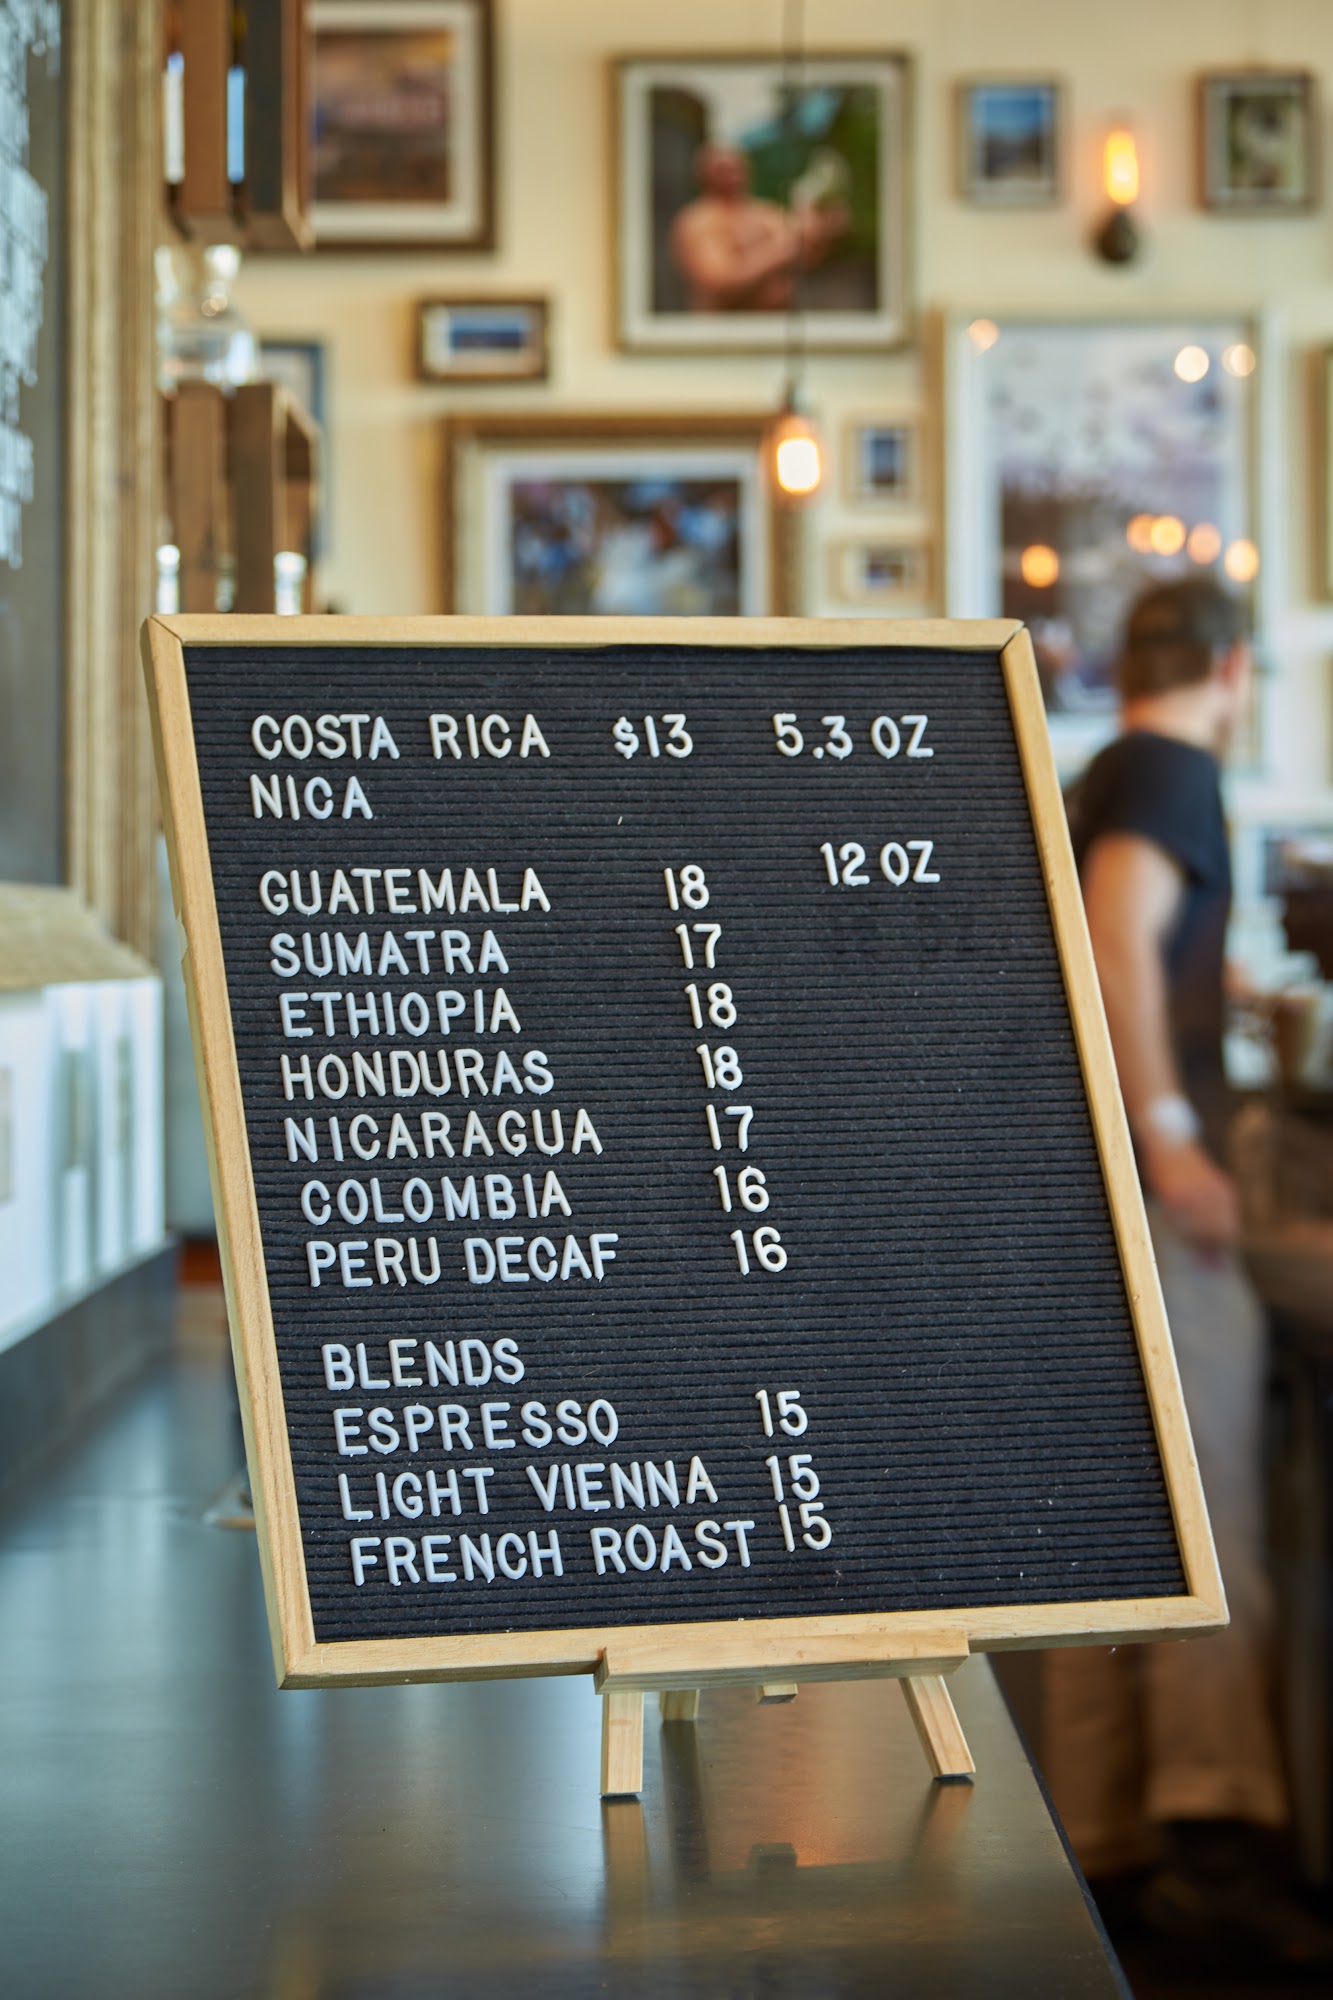 COSTA RICA $13 5.3 OZ
NICA
GUATEMALA 18 12 OZ
SUMATRA 17
ETHIOPIA 18
HONDURAS 18
NICARAGUA 17
COLOMBIA 16
PERU DECAF 16
BLENDS
ESPRESSO 15
LIGHT VIENNA 15
FRENCH ROAST 15